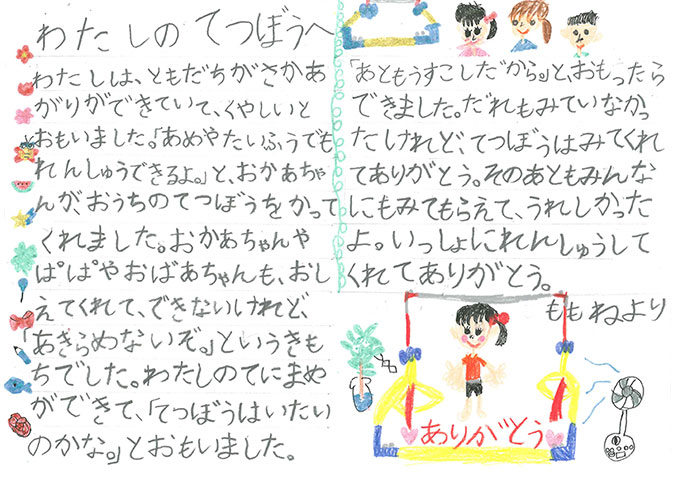 わたしの てつぼうへ
わたしは、ともだちがさかあ
がりができていて、くやしいと
おもいました。「あめやたいふうでも
れんしゅうできるよ。」と、おかあちゃ
んが、おうちのてつぼうをかって
くれました。おかあちゃんや
ぱぱやおばあちゃんも、おし
えてくれて、できないけれど、
「あきらめないぞ。」というきも
ちでした。わたしのてにまめ
ができて、「てつぼうはいたい
のかな。」とおもいました。
「あともうすこしだから。」と、おもったら
できました。だれもみていなかっ
たけれど、てつぼうはみてくれ
てありがとう。そのあともみんな
にもみてもらえて、うれしかった
よ。いっしょにれんしゅうして
くれてありがとう。
ももねより
ありがとう